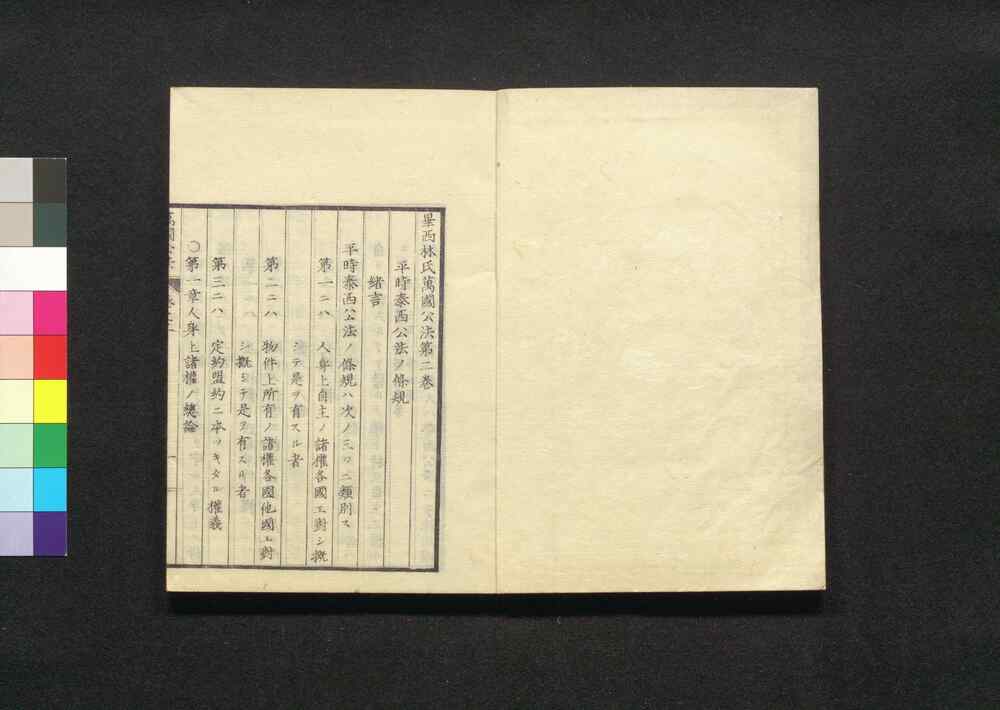 畢洒林氏萬國公法第二卷
平時泰西公法ノ條規
緒言
平時泰西公法ノ條規ハ次ノ三ツニ類別ス
第一ニハ 人身上自主ノ諸權各國互ニ對シ概
シテ是ヲ有スル者
第二ニハ 物件上所有ノ諸權各國他國ニ對
シ概シテ是ヲ有スル者
第三ニハ 定約盟約ニ本ツキタル權義
〇第一章人身上諸權ノ總論
萬國公法